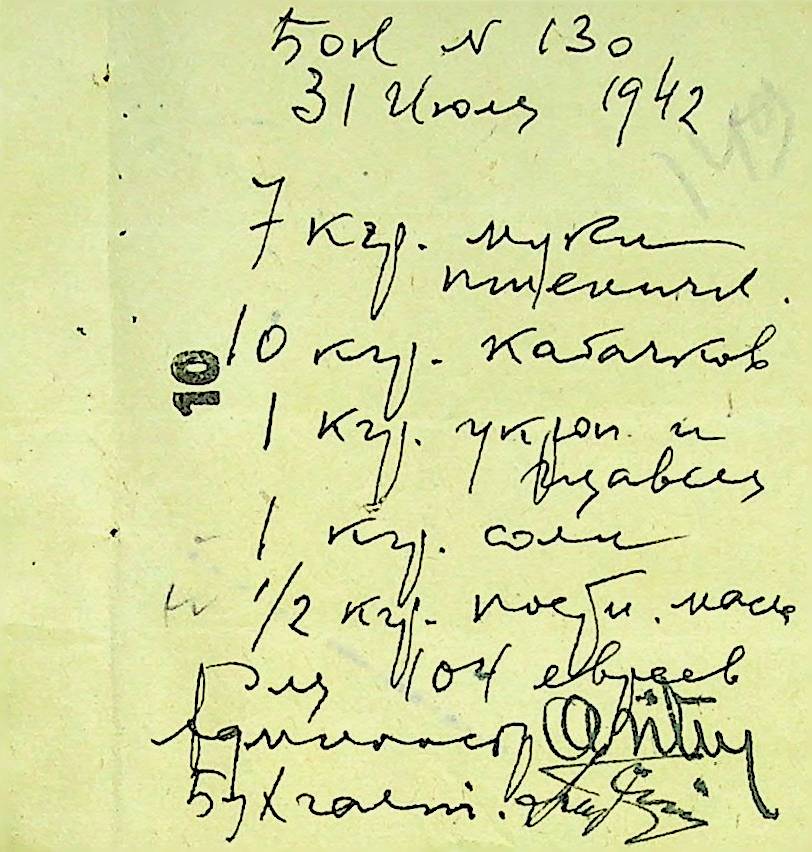 Бон N 130
31 Июля 1942
7 кгр. муки
пшеничн.
10 кгр. кабачков
10
1 кгр. укроп и
щавель
1 кгр. соли
1/2 кгр. постн. масл
Для 104 евреев
Администр
Бухгалт.